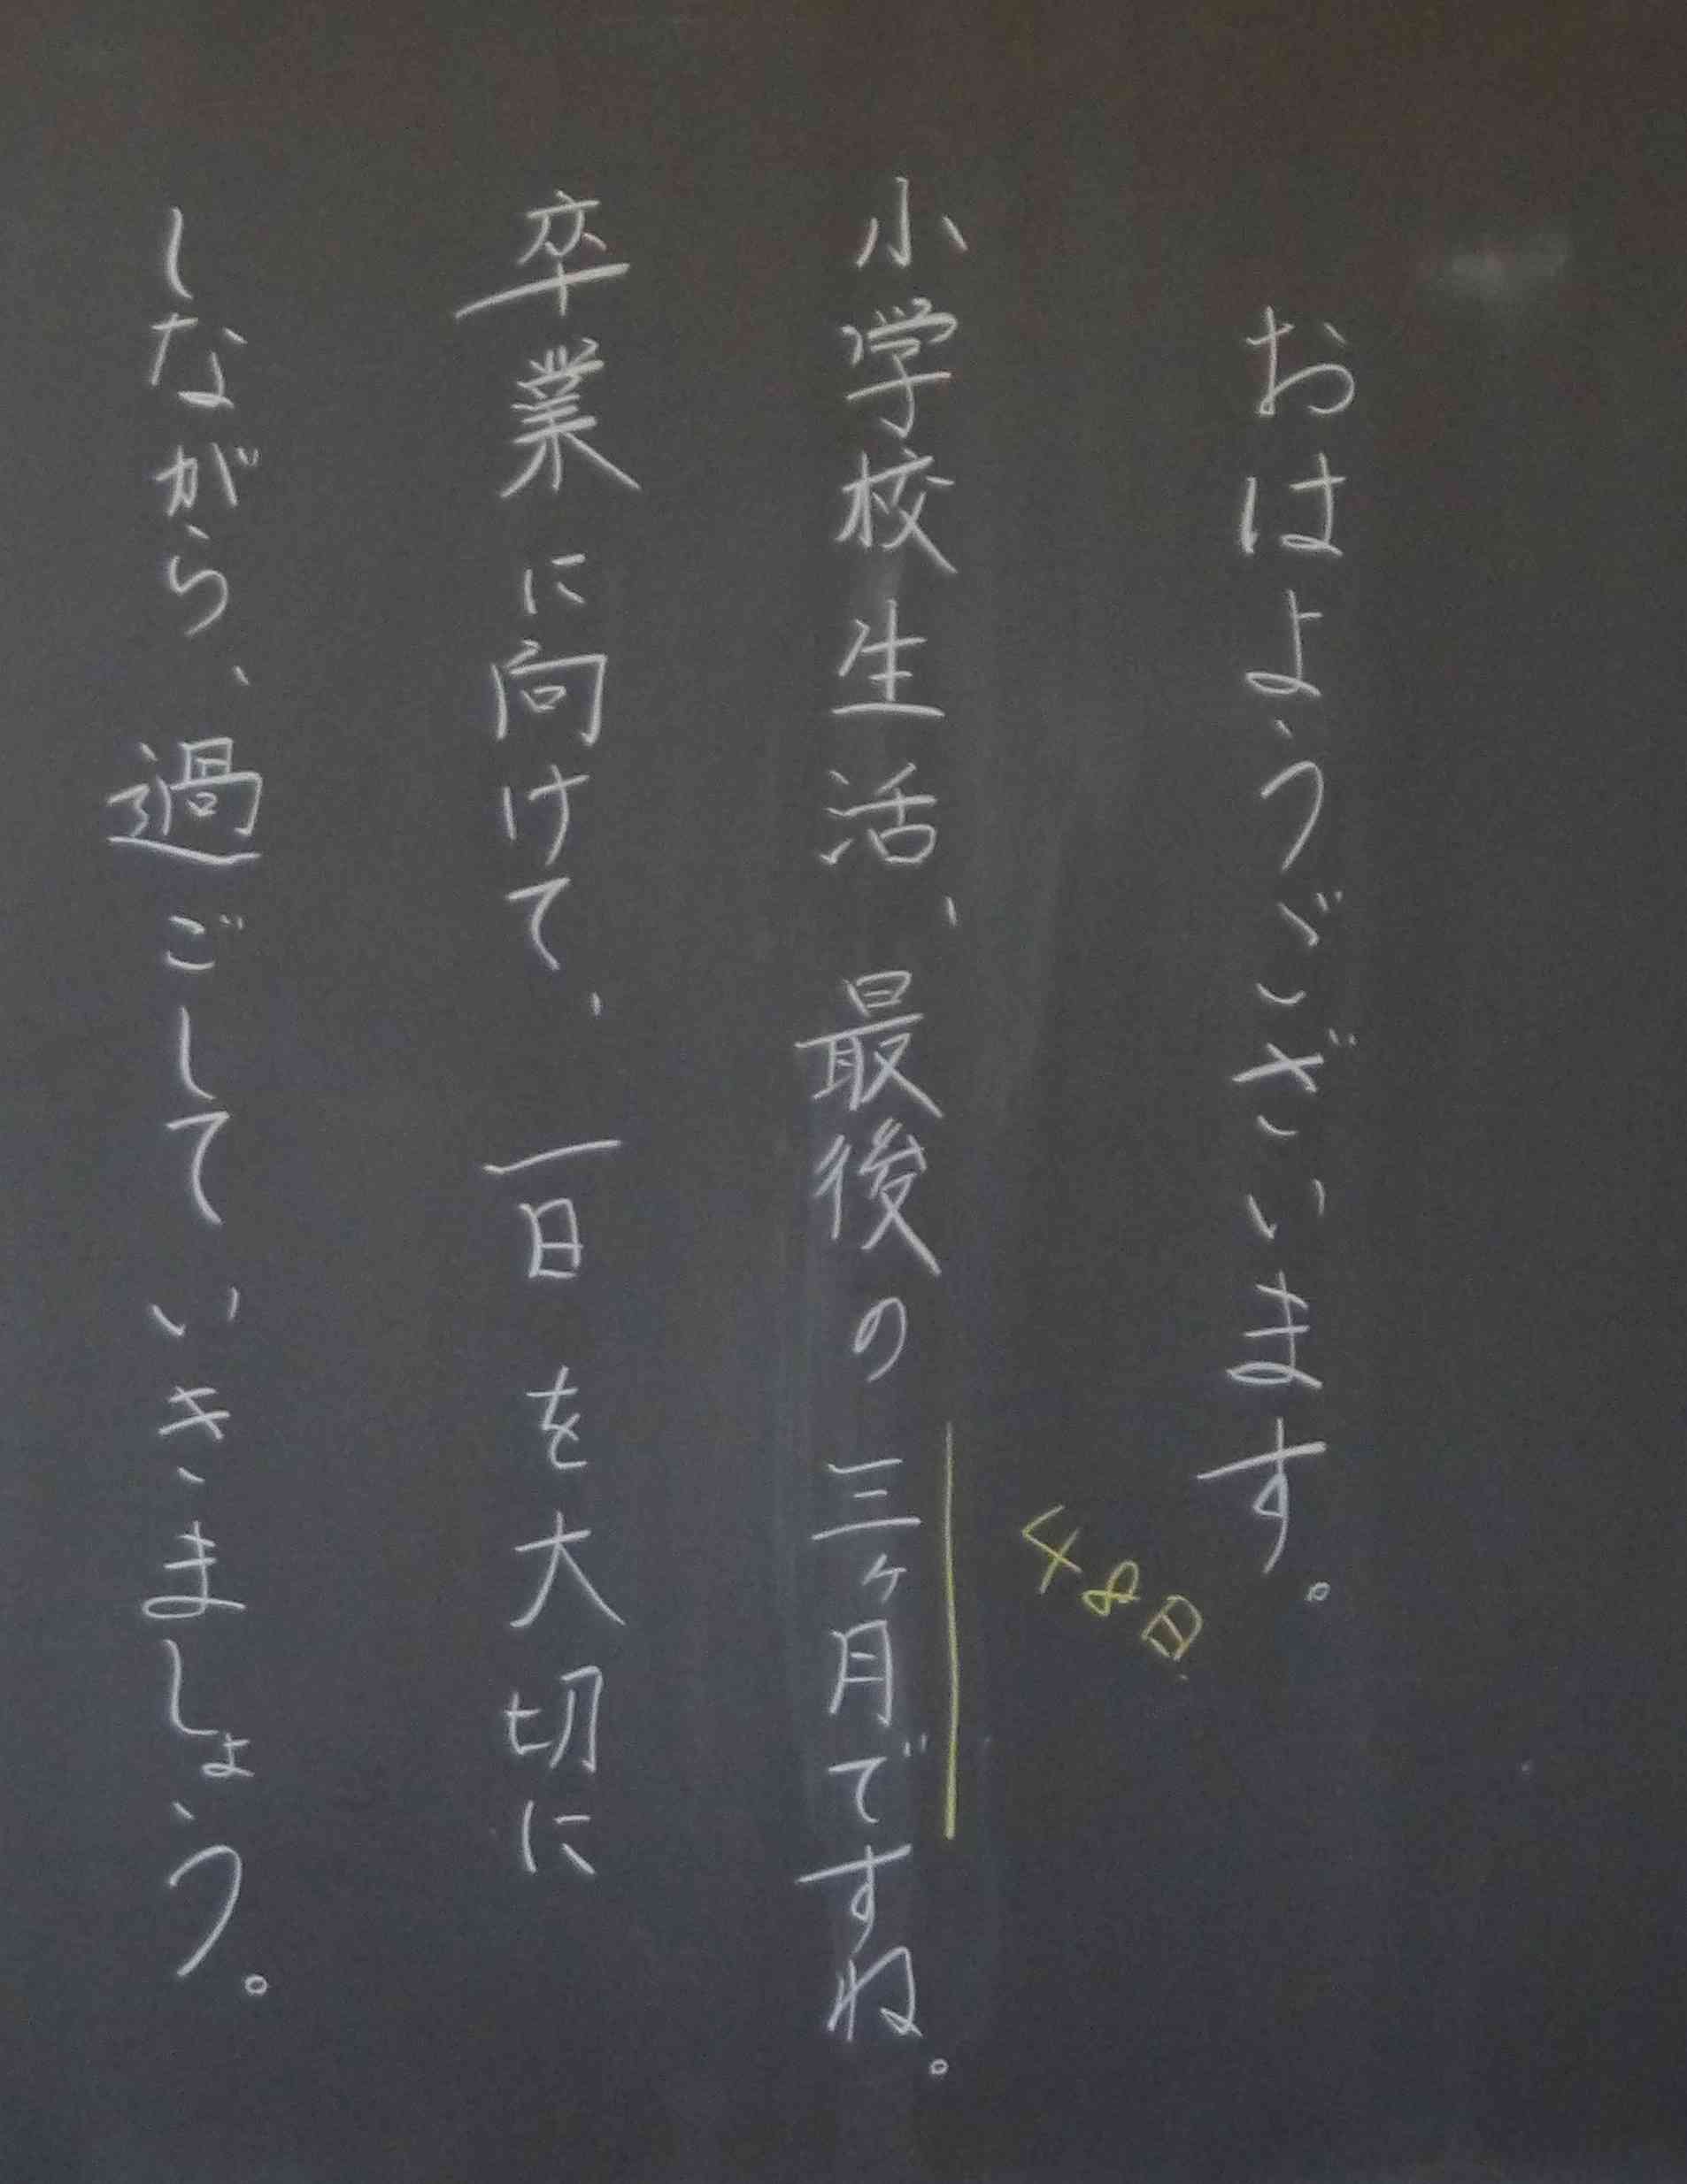 おはようございます。
48日
小学校生活、最後の三ヶ月ですね。
卒業に向けて、一日を大切に
しながら、過ごしていきましょう。